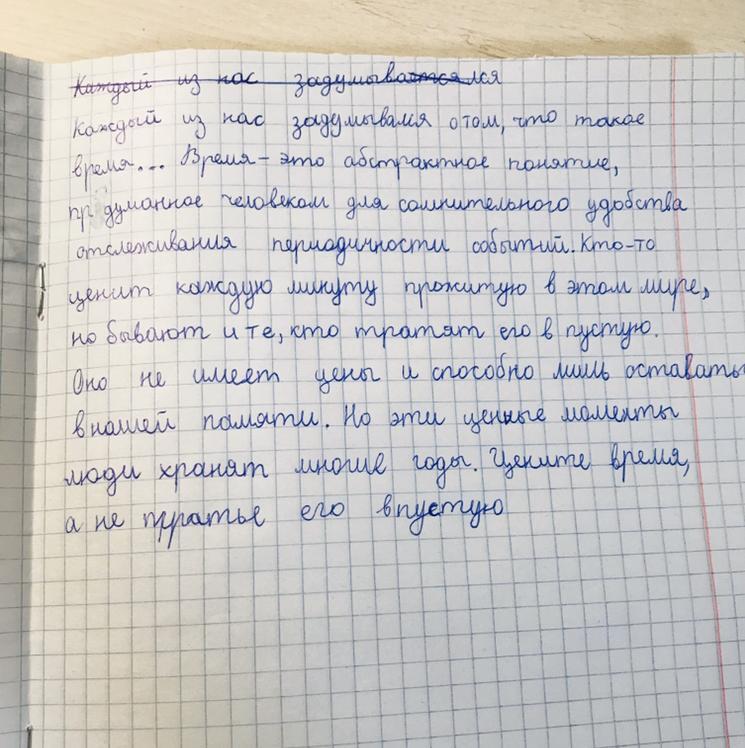 Каждый из нас задумывался
Каждый из нас задумывался о том, что такое
время... Время - это абстрактное понятие,
пр думанное человеком для сомнительного удобства
отслеживания периодичности событий. Кто-то
ценит каждую минуту прожитую в этом мире,
но бывают и те, кто тратят его в пустую.
Оно не имеет цены и способно лишь оставать
в нашей памяти. Но эти ценные моменты
люди хранят многие годы. Цените время,
а не тратье его впустую